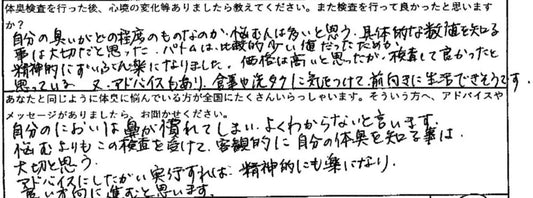 体臭検査を行った後、心境の変化等ありましたら教えてください。また検査を行って良かったと思います
か?
自分の臭いがどの程度のものなのか、悩む人は多いと思う。具体的な数値を知る
事は大切だと思った。パトムは、比較的少い値だったためか、
精神的にずいぶん楽になりました。価格は高いと思ったが、検査して良かったと
思っている。又、アドバイスもあり、食事や洗タクに気をつけて、前向きに生活できそうです。
あなたと同じように体臭に悩んでいる方が全国にたくさんいらっしゃいます。そういう方へ、アドバイスや
メッセージがありましたら、お聞かせください。
自分のにおいは鼻が慣れてしまい、よくわからないと言います。
悩むよりもこの検査を受けて、客観的に自分の体臭を知る事は
大切と思う。
アドバイスにしたがい実行すれば、精神的にも楽になり、
良い方向に進むと思います。